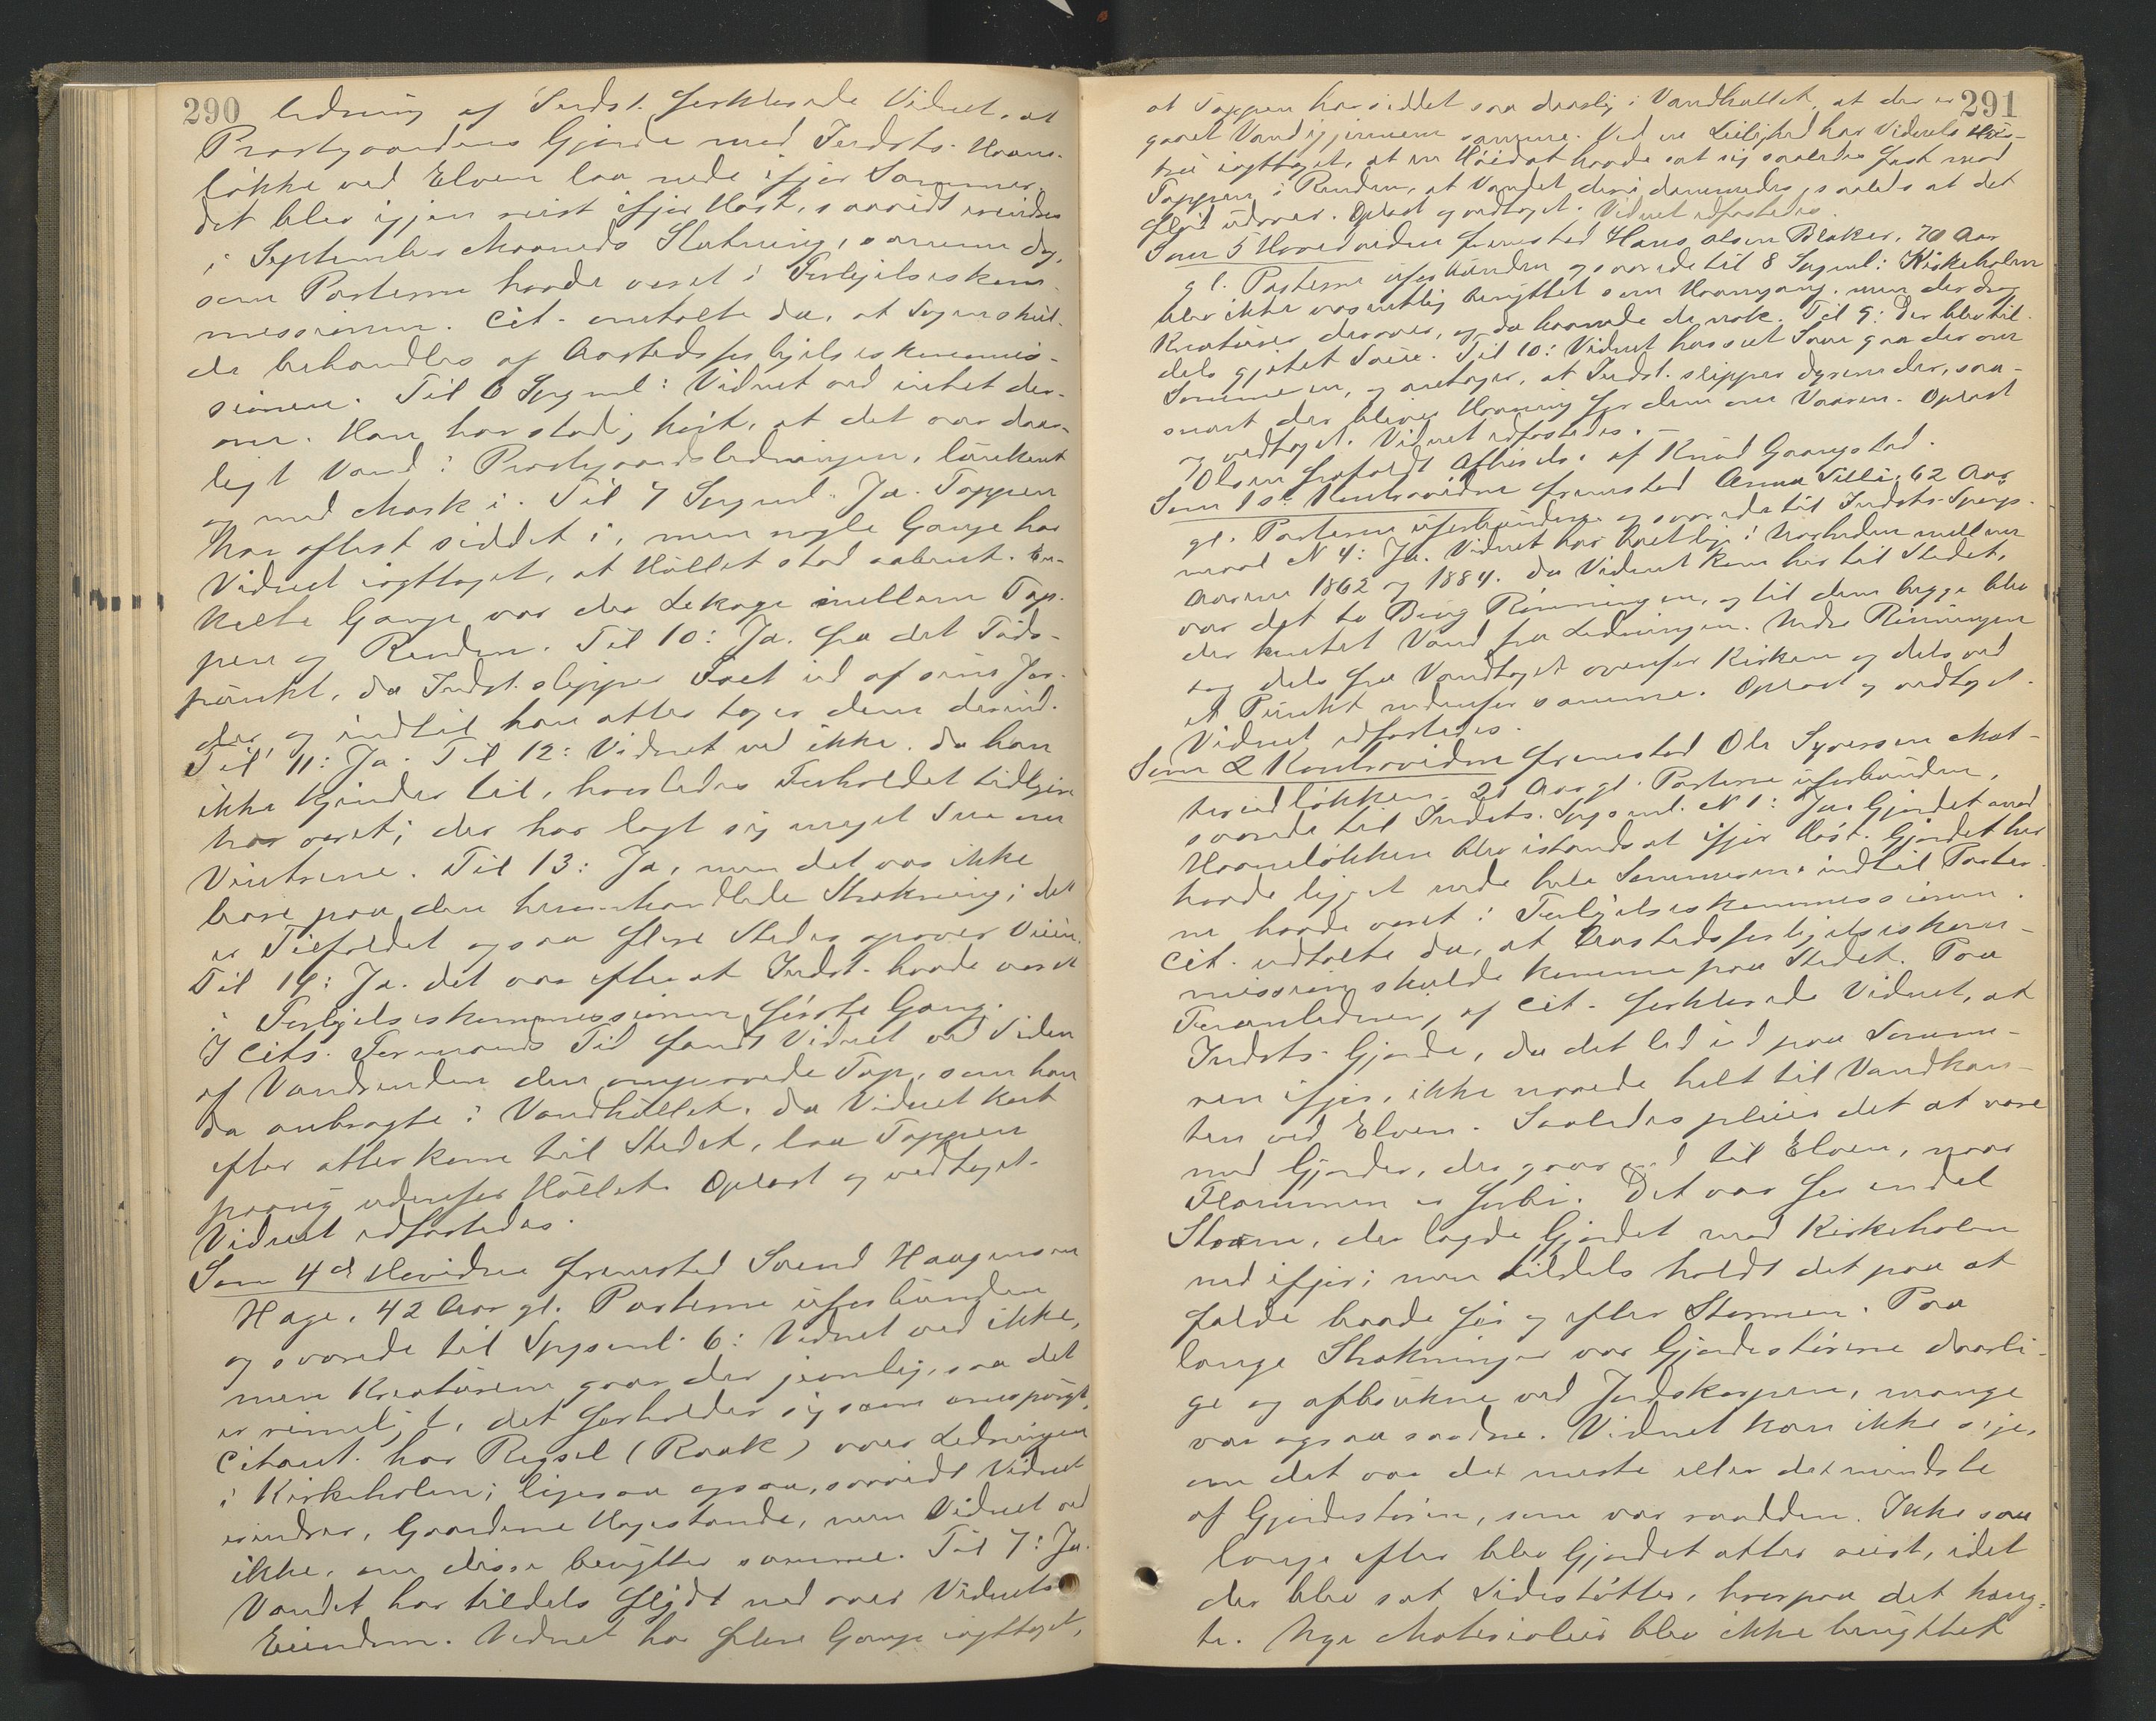 290
ledning af Indst. forklarede Vidnet, at
Prestgaardens Gjerde mod Indsts. Havne-
løkke ved Elven laa nede ifjor Sommer,
det blev igjen reist ifjor Høst, saavidt erindres
i September Maaneds Slutning, samme Dag,
som Parterne havde været i Forligelseskom-
missionen. Cit. omtalte da, at Sagen skul-
de behandles af Aastedsforligelseskommis-
sionen. Til 6 Spgml: Vidnet ved intet der-
om. Han har stadig hørt, at det var daar-
ligt Vand i Prestgaardsledningen,
og med Mark i. Til 7 Spgml. Ja. Tappen
har oftest siddet i, men nogle Gange har
Vidnet iagttaget, at Hullet stod aabent. En-
kelte Gange var der Lekage mellem Tap-
pen og Renden. Til 10: Ja. fra det Tids-
punkt, da Indst. slipper Saet ud af sine Jor-
der og indtil han atter tager dem derind.
Til 11: Ja. Til 12: Vidnet ved ikke, da han
ikke kjender til, hvorledes Forholdet tidligere
har været; der har lagt sig meget Sne om
Vintrene. Til 13: Ja, men det var ikke
bare paa den heromhandlede Strækning; det
er Tilfældet ogsaa flere Steder opover Veien.
Til 14: Ja. det var efter at Indst. havde været
i Forligelseskommissionen første Gang.
I Cits. Formands Tid fandt Vidnet ved Siden
af Vandrenden den omprovede Tap, som han
da anbragte i Vandhullet. Da Vidnet kort
efter atter kom til Stedet, laa Tappen
paany udenfor Hullet. Oplæst og vedtaget.
Vidnet edfæstedes.
Som 4de Hovidne fremstod Svend Haagensen
Hage, 42 Aar gl. Parterne uforbunden
og svarede til Spgsml. 6: Vidnet ved ikke,
men Kreaturene gaar der jevnlig, saa det
er rimeligt, det forholder sig som omspurgt.
Citant. har Regsel (Raak) over Ledningen
i Kirkeholen; ligesaa ogsaa, saavidt Vidnet
erindrer, Gaardene Hagestande, men Vidnet ved
ikke, om disse benytter samme. Til 7: Ja.
Vandet har tildels flydt ned over Vidnets
Eiendom. Vidnet har flere Gange iagttaget,
291
at Tappen har siddet saa daarlig i Vandhullet, at der er
gaaet Vand igjennem samme. Ved en Leilighed har Vidnets Hus-
tru iagttaget, at en Høidot havde sat sig saaledes fast mod
Tappen i Renden, at Vandet deri dæmmedes, saaleds at det
flød udover. Oplæst og vedtaget. Vidnet edfæstedes.
Som 5 Hovedvidne fremstod Hans Olsen Blaker, 70 Aar
gl. Parterne uforbunden og svarede til 8 Spgml: Kirkeholen
blev ikke væsentlig benyttet som Havnegang, men der drog
Kreaturer derover, og da havnede de nok. Til 9: Der blev til-
dels gjætet Sauer. Til 10: Vidnet har seet Saue gaa der om
Sommeren, og antager, at Indst. slipper dyrene der, saa-
snart der bliver Havning for dem om Vaaren. Oplæst
og vedtaget. Vidnet edfæstedes.
Olsen frafaldt Afhørelse af Knud Gaangstad.
Som 1st. Kontravidne fremstod Anna Tilli, 62 Aar
gl. Parterne uforbunden og svarede til Indsts. Spørgs-
maal N 4: Ja. Vidnet har boet lige i Nærheden mellem
Aarene 1862 og 1884. Da Vidnet kom her til Stedet,
var det to Brug Rønningen, og til dem begge blev
der hentet Vand fra Ledningen. Nedre Rønningen
tog dels fra Vandtaget ovenfor Kirken og dels ved
et Punkt nedenfor samme. Oplæst og vedtaget.
Vidnet edfæstedes.
Som 2 Kontravidne fremstod Ole Syversen Mat-
terudløkken, 21 Aar gl. Parterne uforbunden,
svarede til Indsts. Spgsml. N 1: Ja. Gjerdet mod
Havneløkken blev istandsat ifjor Høst. Gjerdet her
havde ligget nede hele Sommeren, indtil Parter-
ne havde været i Forligelseskommissionen.
Cit. udtalte da, at Aastedsforligelseskom-
mission skulde komme paa Stedet. Paa
Foranledning af Cit. forklarede Vidnet, at
Indsts. Gjerde, da det led ud paa Somme-
ren ifjor, ikke naaede helt til Vandkan-
ten ved Elven. Saaledes pleier det at være
med Gjerder, der gaar ned til Elven, naar
Flommen er forbi. Det var før endel
Storm, der lagde Gjerdet mod Kirkeholen
ned ifjor; men tildels holdt det paa at
falde baade før og efter Stormen. Paa
lange Strækninger var Gjerdestørene daarli-
ge og afbrukne ved Jordskorpen, mange
var ogsaa raadne. Vidnet kan ikke sige,
om det var det meste eller det mindste
af Gjerdestøren, som var raadden. Ikke saa
længe efter blev Gjerdet atter reist, idet
der blev sat Sidestøtter, hvorpaa det hæng-
te. Nye Materialier blev ikke benyttet